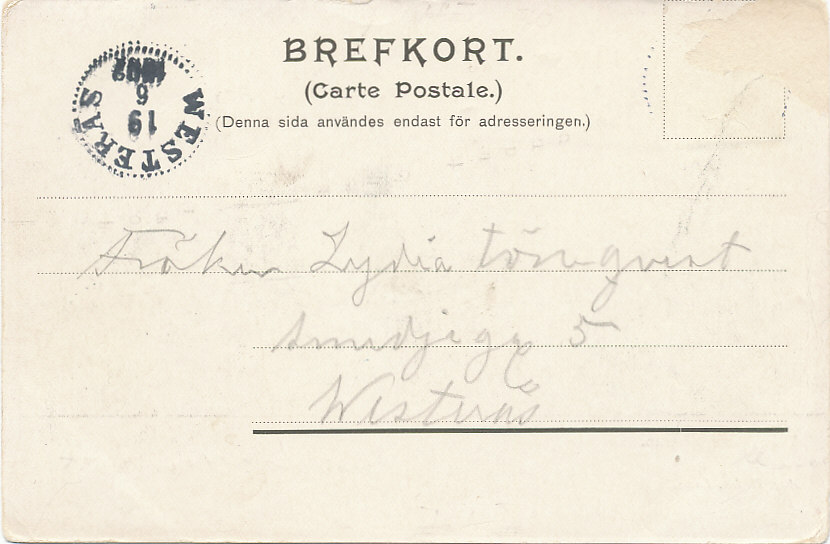 BREFKORT.
(Carte Postale.)
(Denna sida användes endast för adresseringen.)
WESTERÅS
19
6
Fröken Lydia Törnqvist
Smedjeg 5
Westerås